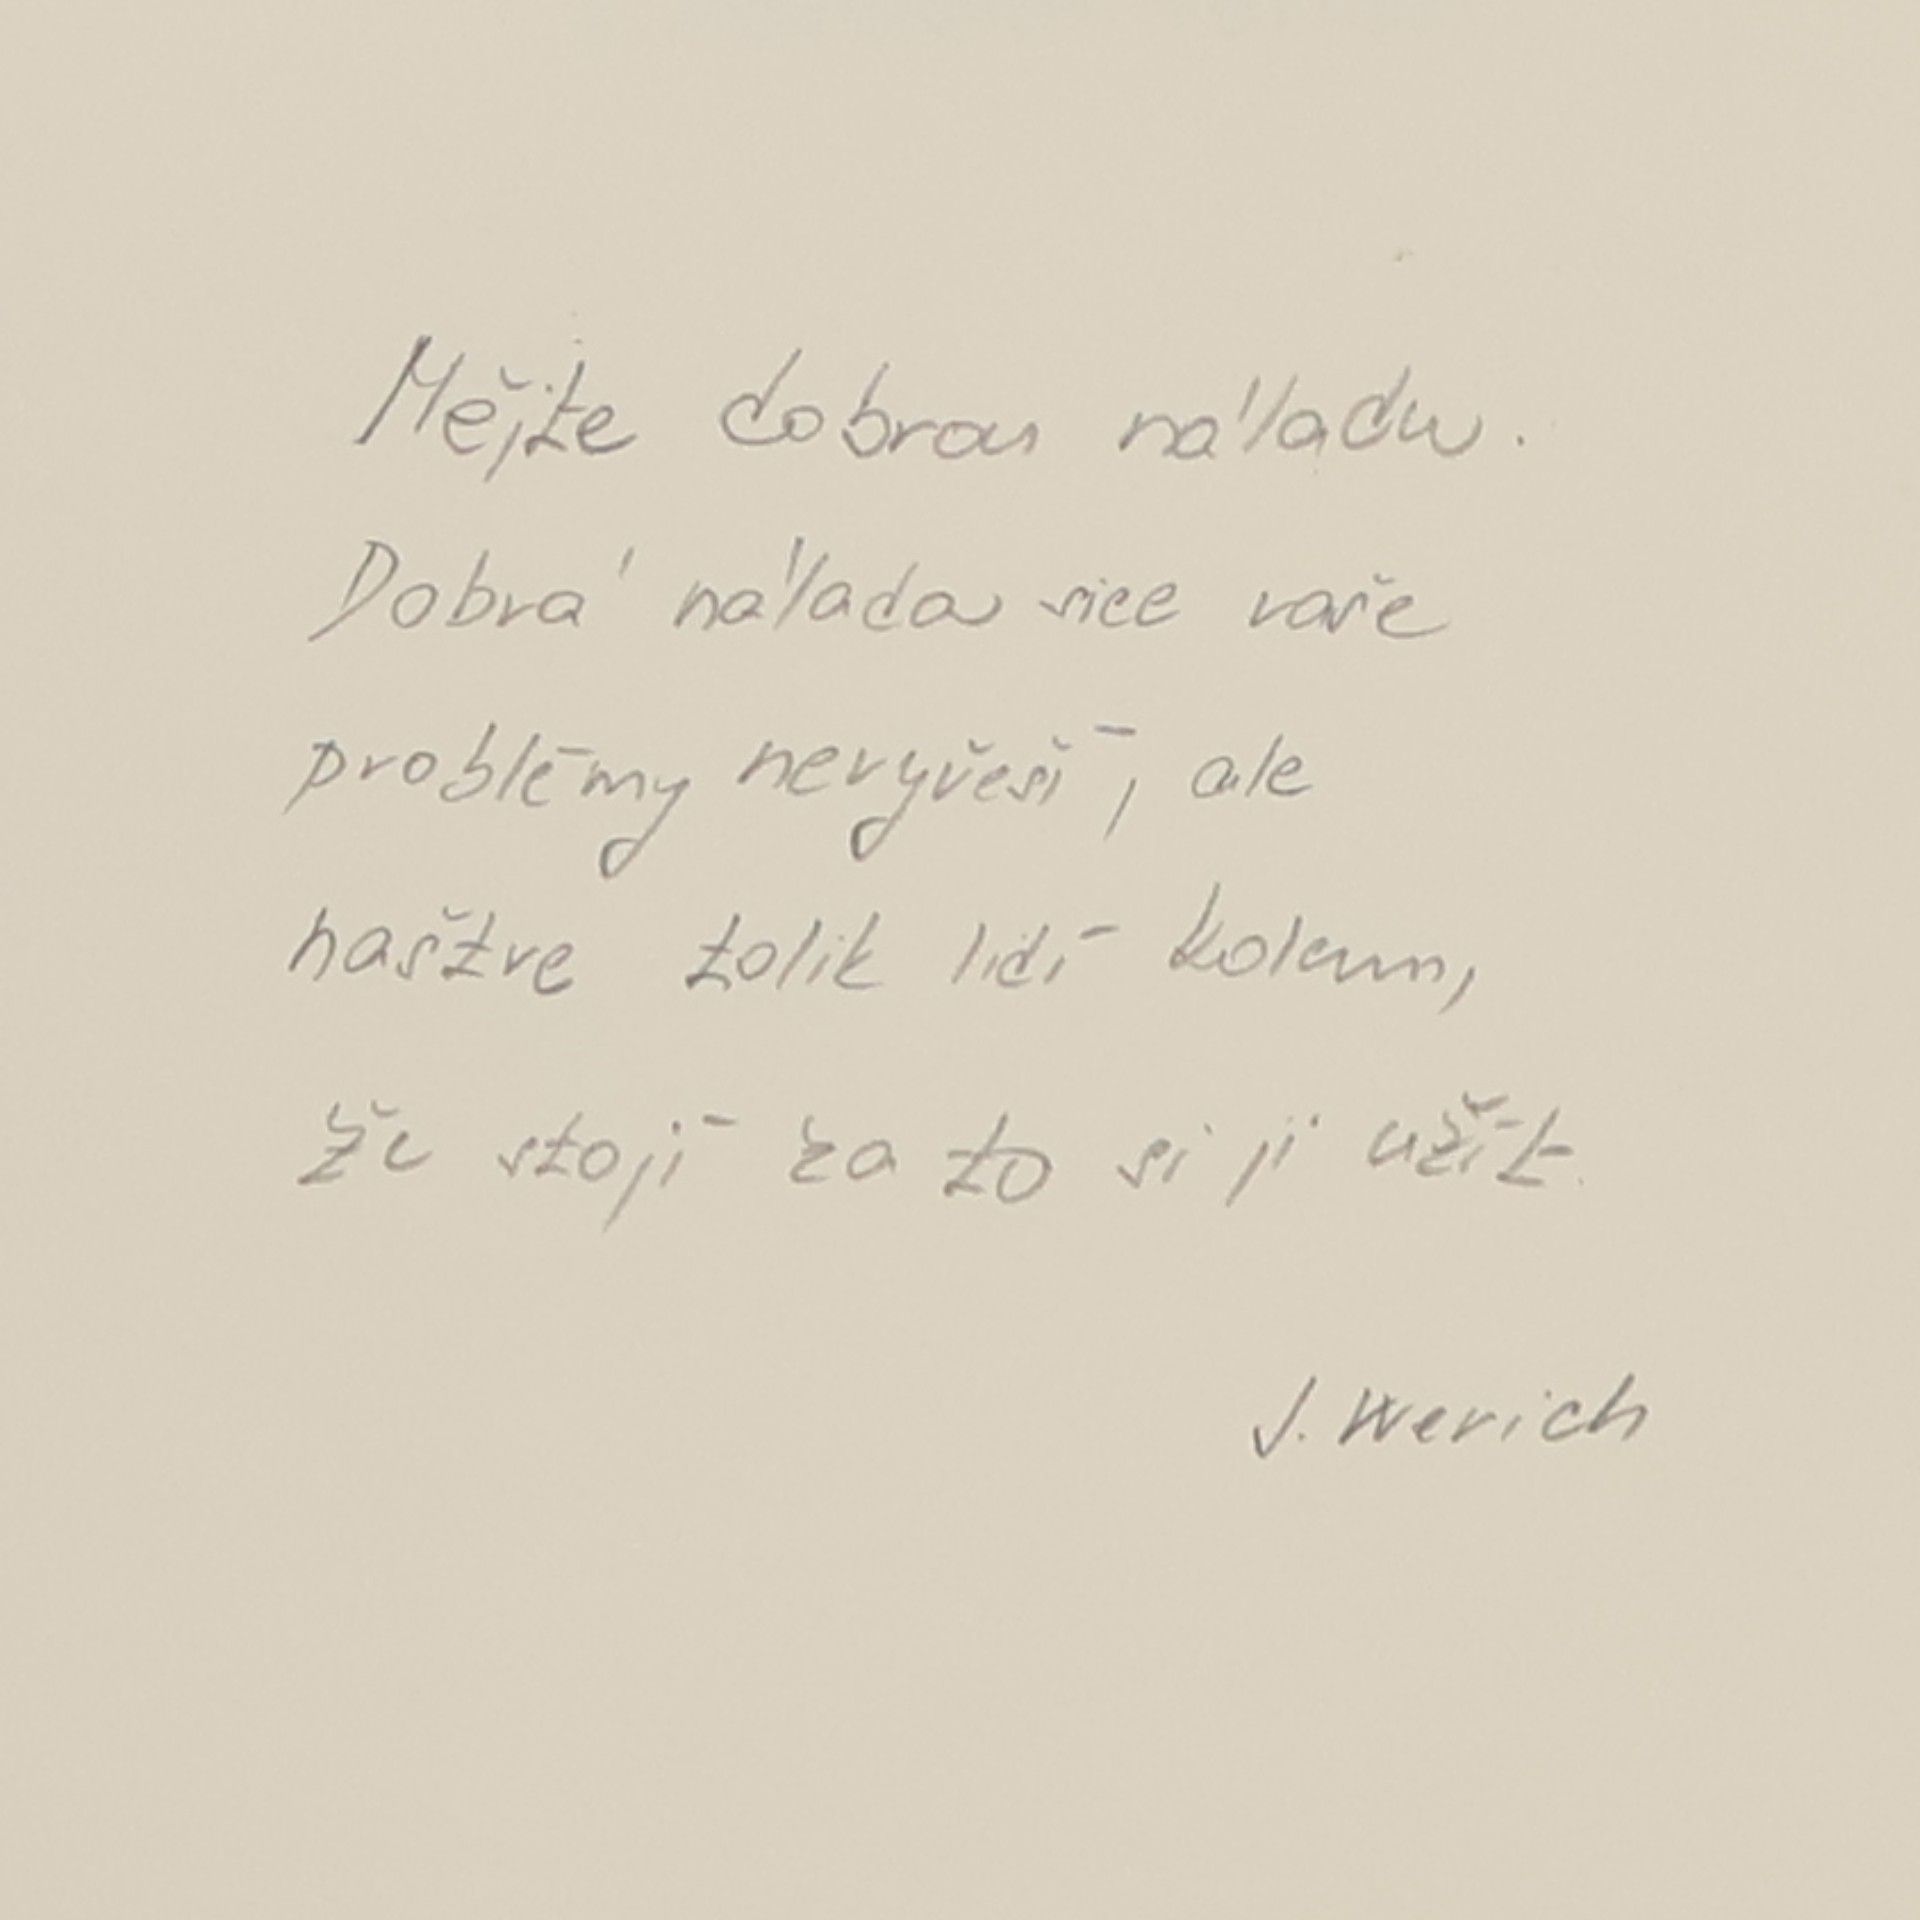 Mějte dobrou náladu.
Dobrá nálada sice vaše
problémy nevyřeší, ale
naštve tolik lidí kolem,
že stojí za to si ji užít.
J. Werich